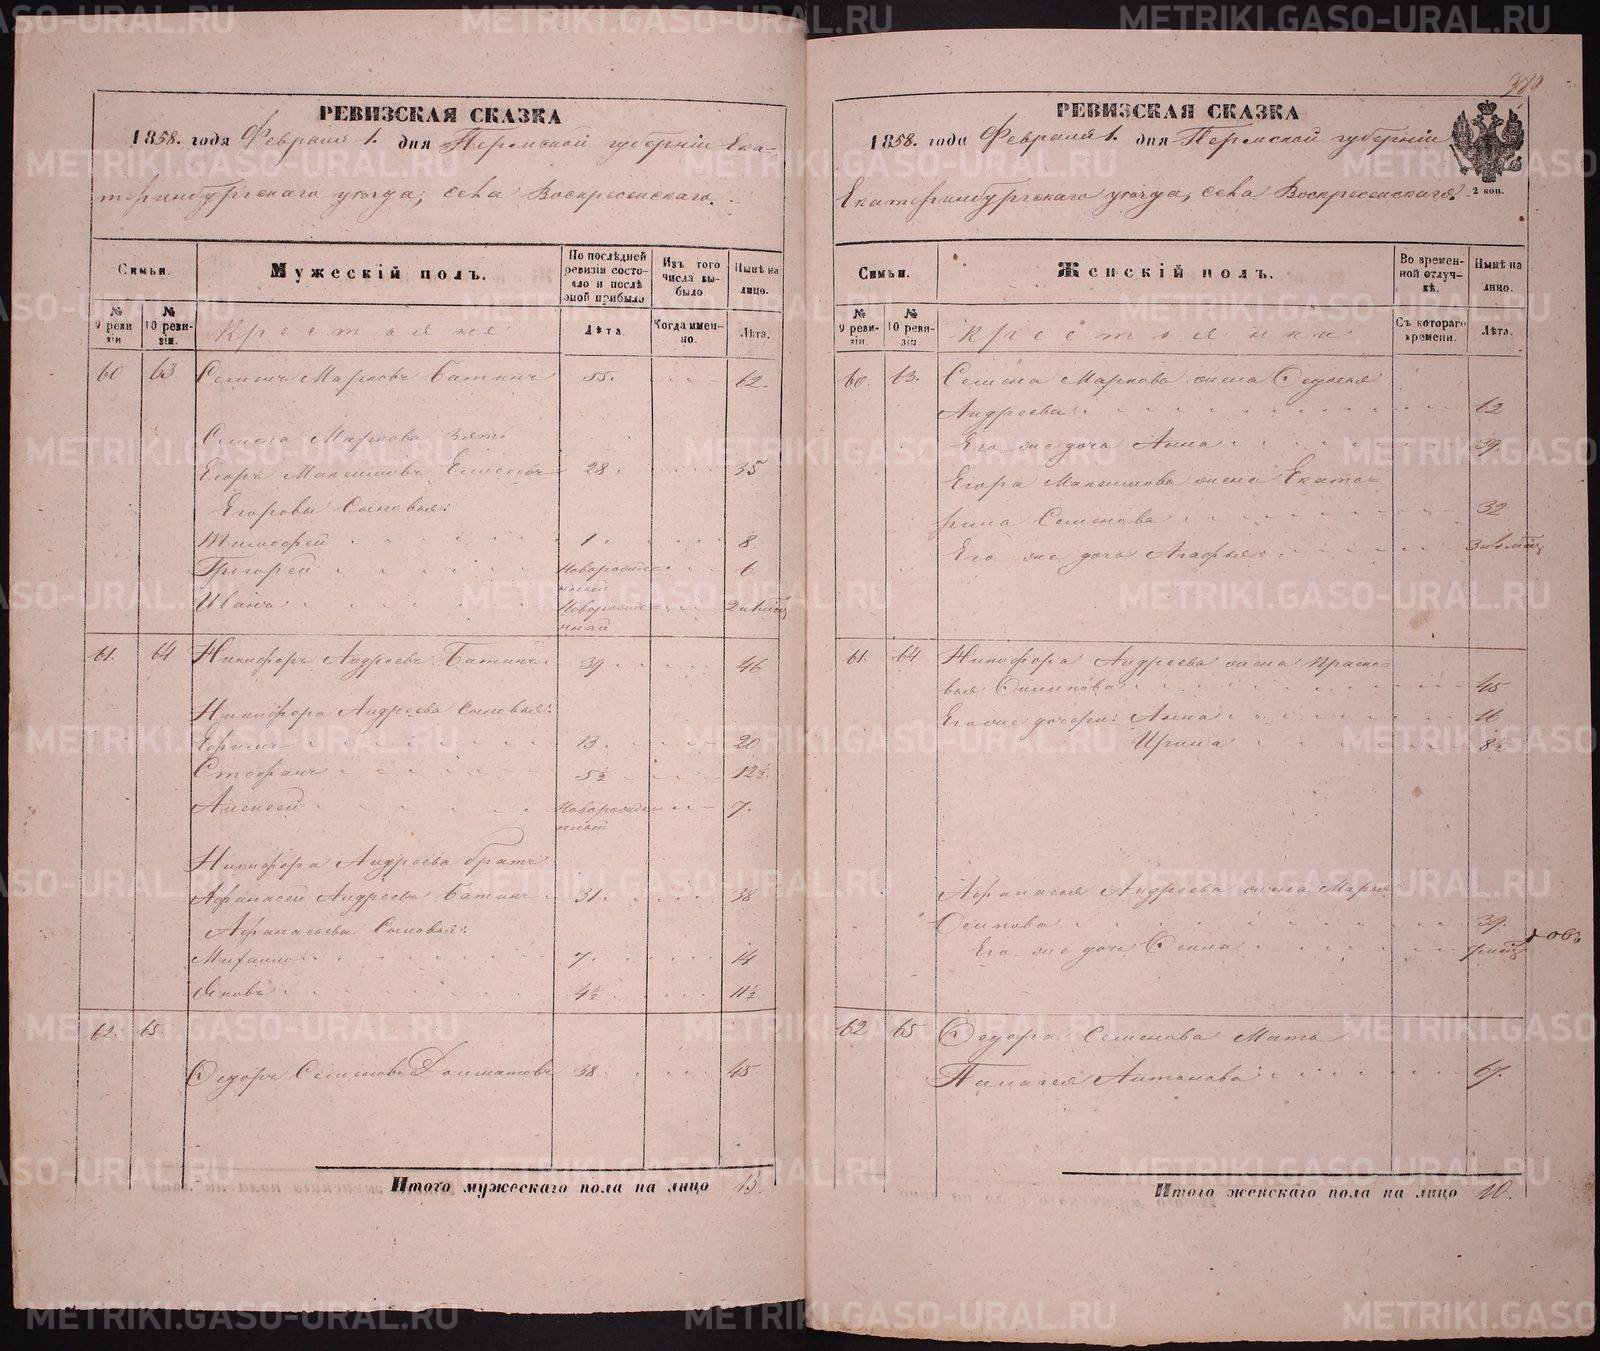 РЕВИЗСКАЯ СКАЗКА
1858. года Февраля 1. дня Пермской губерніи Ека-
теринбургскаго уѣзда, села Воскресенскаго.
Семьи.
Мужескій полъ.
По послѣдней ревизіи состояло и послѣ оной прибыло
Изъ того числа выбыло
Нынѣ на лицо.
№ 9 ревизіи
№ 10 ревизіи.
Крестьяне
Лѣта.
Когда именно.
Лѣта.
60 63 Семенъ Марковъ Батинъ 55. 62.
Семена Маркова Зять
Егоръ Максимовъ Елисеевъ 28 35
Егоровы Сыновья:
Тимофей 1 8
Григорей Новорожденный 6
Иванъ Новорожденный
61. 64 Никифоръ Андреевъ Батинъ 39 46
Никифора Андреева Сыновья:
Ефимъ 13 20
Стефанъ 5½ 12½
Алексей Новорожденный 7.
Никифора Андреева братъ
Афанасей Андреевъ Батинъ 31 38
Афанасьева Сыновья:
Михаило 7 14
Яковъ 4½ 11½
62. 65.
Федоръ Семеновъ Долматовъ 38 45
Итого мужескаго пола на лицо 13.
РЕВИЗСКАЯ СКАЗКА
1858. года Февраля 1. дня Пермской губерніи
Екатеринбургскаго уѣзда, села Воскресенскаго.
2 коп.
Семьи.
Женскій полъ.
Во временной отлучкѣ.
Нынѣ на лицо.
№ 9 ревизіи.
№ 10 ревизіи.
Крестьянки
Съ котораго времени.
Лѣта.
60. 63. Семена Маркова жена Федосья
Андреева 62
Его же дочь Анна 39
Егора Максимова жена Екате-
рина Семенова 32
Его же дочь Агафья
61. 64 Никифора Андреева жена Праско-
вья Филипова 45
Его же дочери: Анна 16
Ирина 8½
Афанасья Андреева жена Марья
Осипова 39.
Его же дочь
62 65 Федора Семенова Мать
Палагея Антонова 67.
Итого женскаго пола на лицо 10.
METRIKI.GASO-URAL.RU